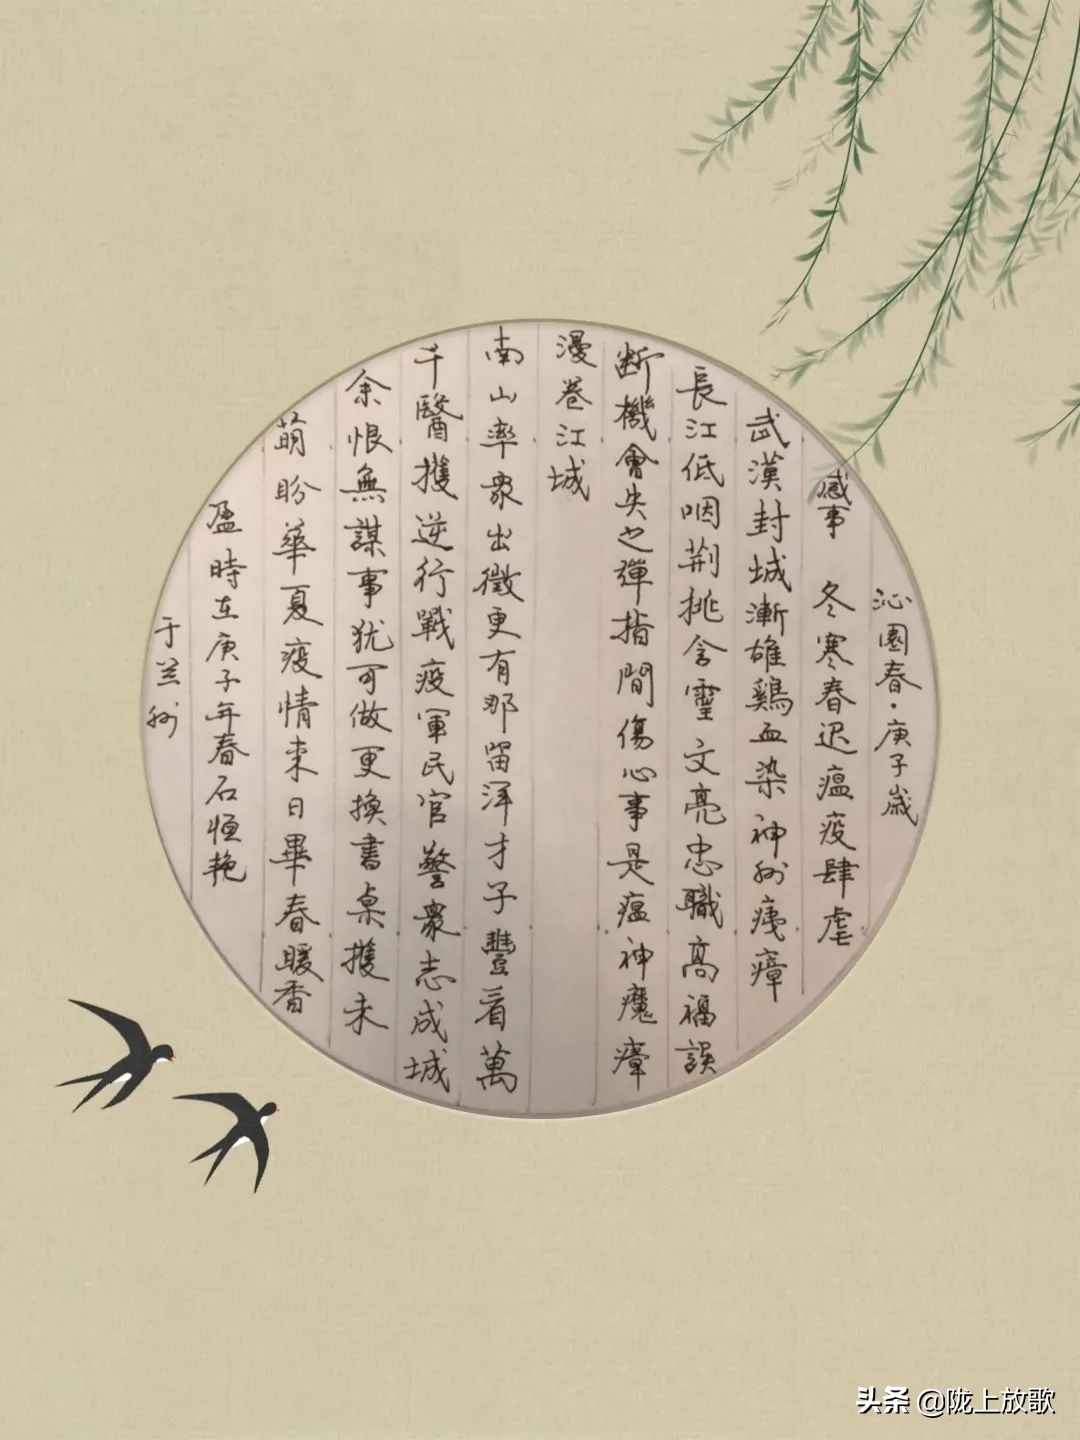 沁園春·庚子歲
感事 冬寒春迟瘟疫肆虐
武漢封城漸雄鷄血染神州痍瘴
長江低咽荆桃含靈文亮忠職高福誤
断機會失之彈指間傷心事是瘟神魔瘴
漫卷江城
南山率衆出徵更有那留洋才子豐看萬
千醫擭逆行戰疫軍民官警衆志成城
余恨無謀事犹可做更換書桌擭未
萌盼華夏疫情来日畢春暖香
盈時在庚子年春石恒艳
于兰州
头条 @陇上放歌